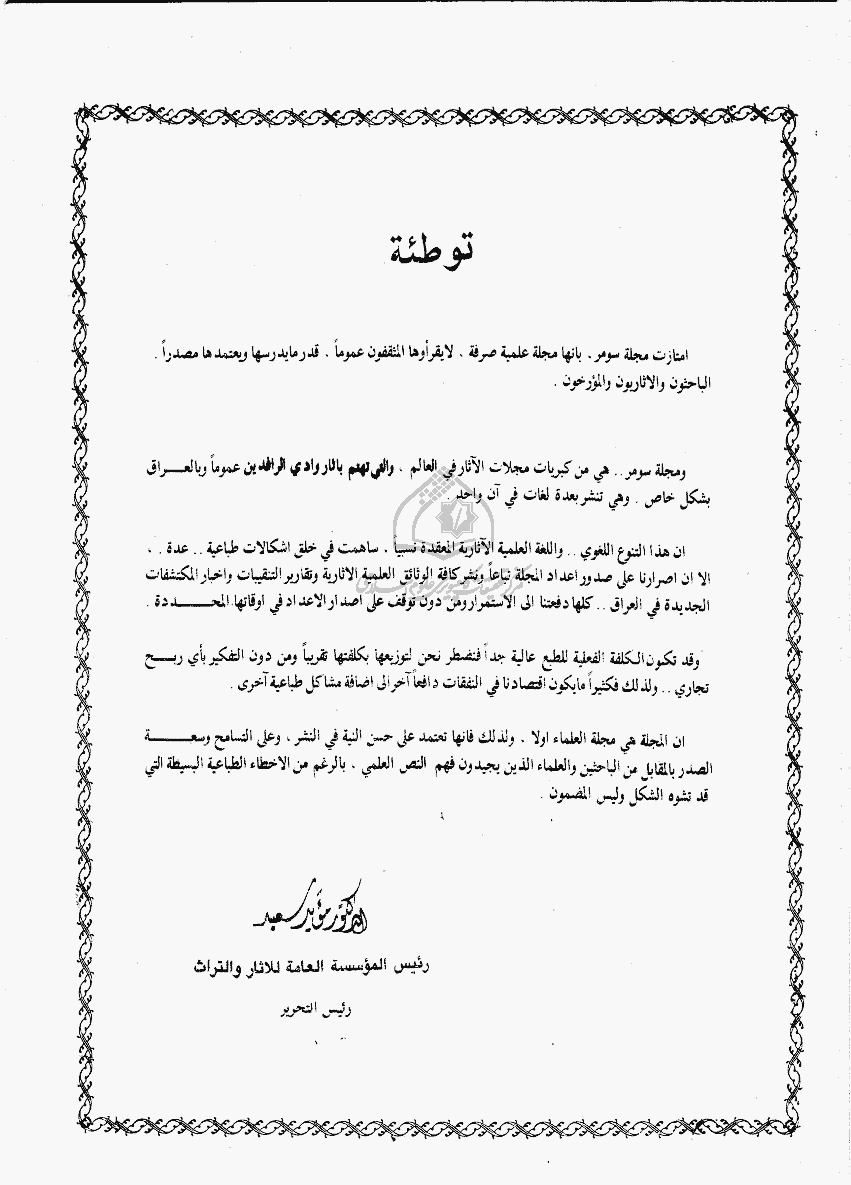 توطئة
امتازت مجلة سومر، بانها مجلة علمية صرفة ، لايقرأوها المثقفون عموماً ، قدر مايدرسها ويعتمدها مصدراً .
الباحثون والاثاريون والمؤرخون .
ومجلة سومر.. هي من كبريات مجلات الآثار في العالم ، والتي تهتم بآثار وادي الرافدين عموماً وبالعـــراق
بشكل خاص . وهي تنشر بعدة لغات في آن واحد .
ان هذا التنوع اللغوي .. واللغة العلمية الآثارية المعقدة نسبياً ، ساهمت في خلق اشكالات طباعية .. عدة . ،
الا ان اصرارنا على صدور اعداد المجلة تباعاً ونشر كافة الوثائق العلمية الاثارية وتقارير التنقيبات واخبار المكتشفات
الجديدة في العراق .. كلها دفعتنا الى الاستمرار ومن دون توقف على اصدار الاعداد في اوقاتها المحـــــددة .
وقد تكون الكلفة الفعلية للطبع عالية جداً فنضطر نحن لتوزيعها بكلفتها تقريباً ومن دون التفكير بأي ربـــح
تجاري .. ولذلك فكثيراً مايكون اقتصادنا في النفقات دافعاً آخر الى اضافة مشاكل طباعية آخرى .
ان المجلة هي مجلة العلماء اولا ، ولذلك فانها تعتمد على حسن النية في النشر ، وعلى التسامح وسعــــــة
الصدر بالمقابل من الباحثين والعلماء الذين يجيدون فهم النص العلمي ، بالرغم من الاخطاء الطباعية البسيطة التي
قد تشوه الشكل وليس المضمون .
الدكتور مؤيد سعيد
رئيس المؤسسة العامة للاثار والتراث
رئيس التحرير